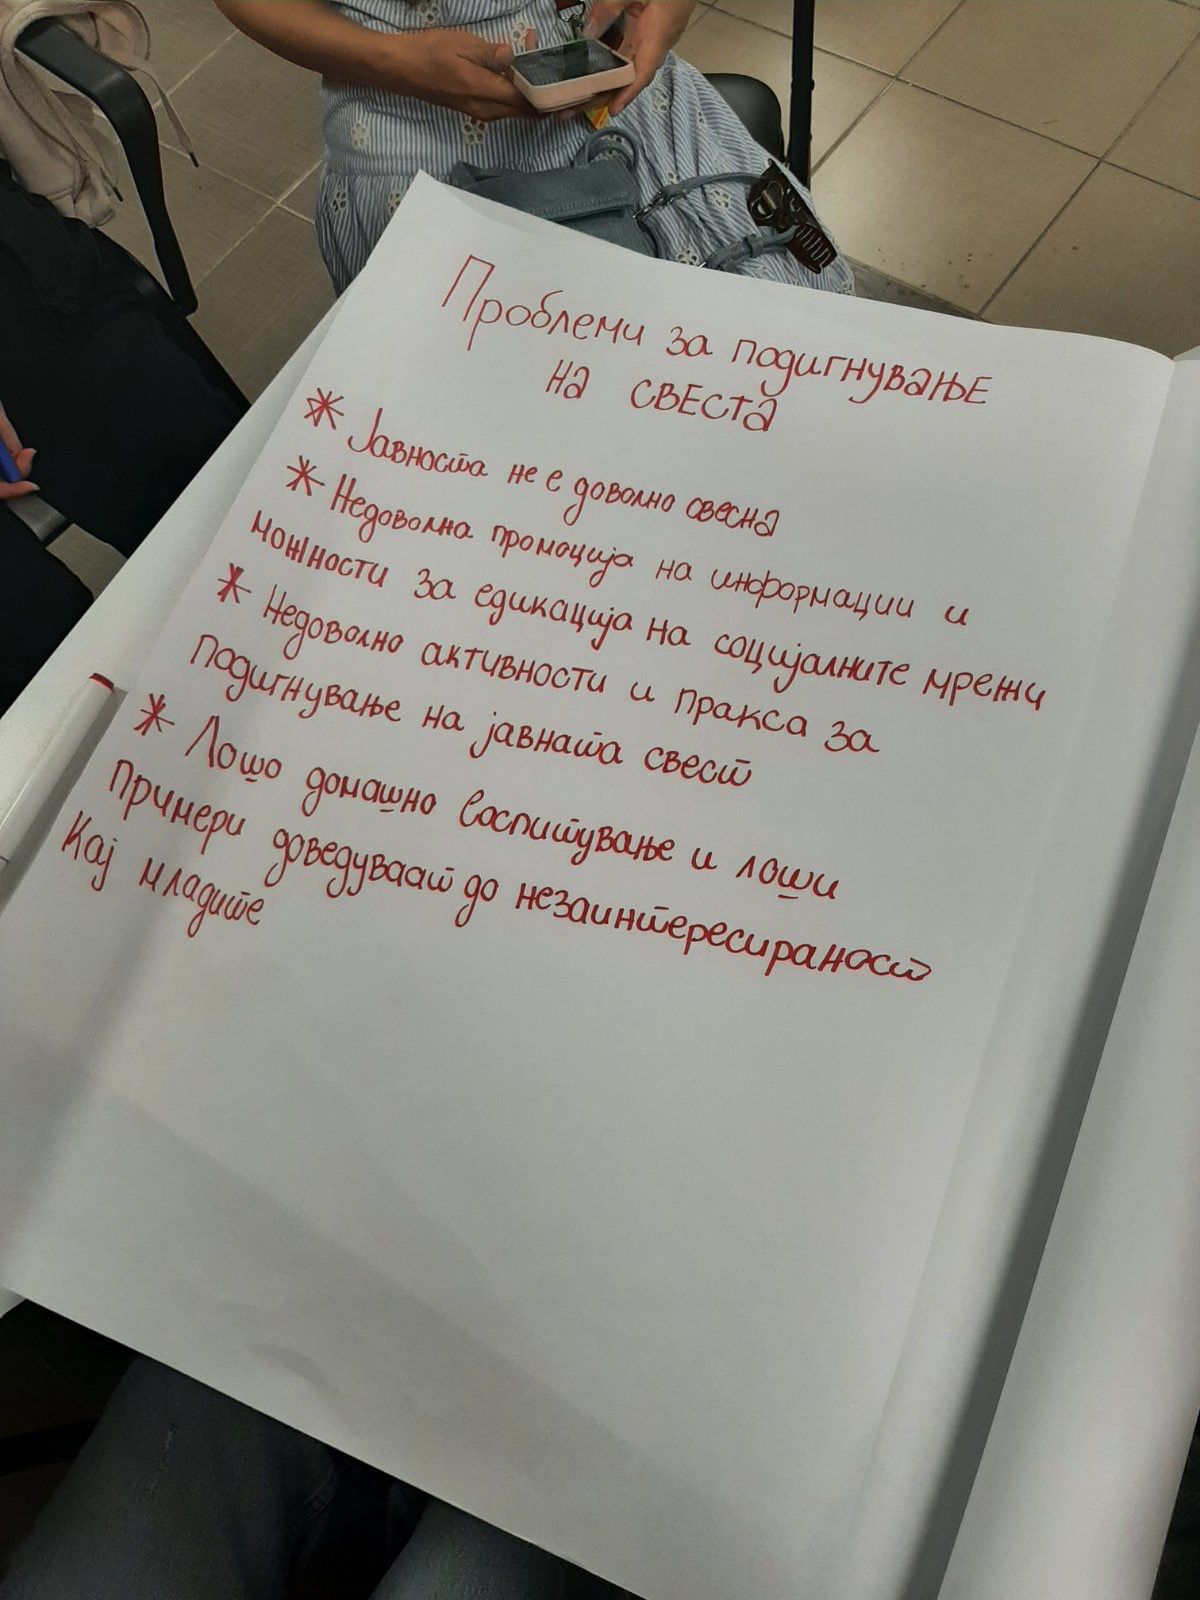 Проблеми за подигнување
на свеста
* Јавноста не е доволно свесна
* Недоволна промоција на информации и
можности за едикација на социјалните мрежи
* Недоволно активности и пракса за
подигнување на јавната свест
* Лошо домашно воспитување и лоши
примери доведуваат до незаинтересираност
кај младите